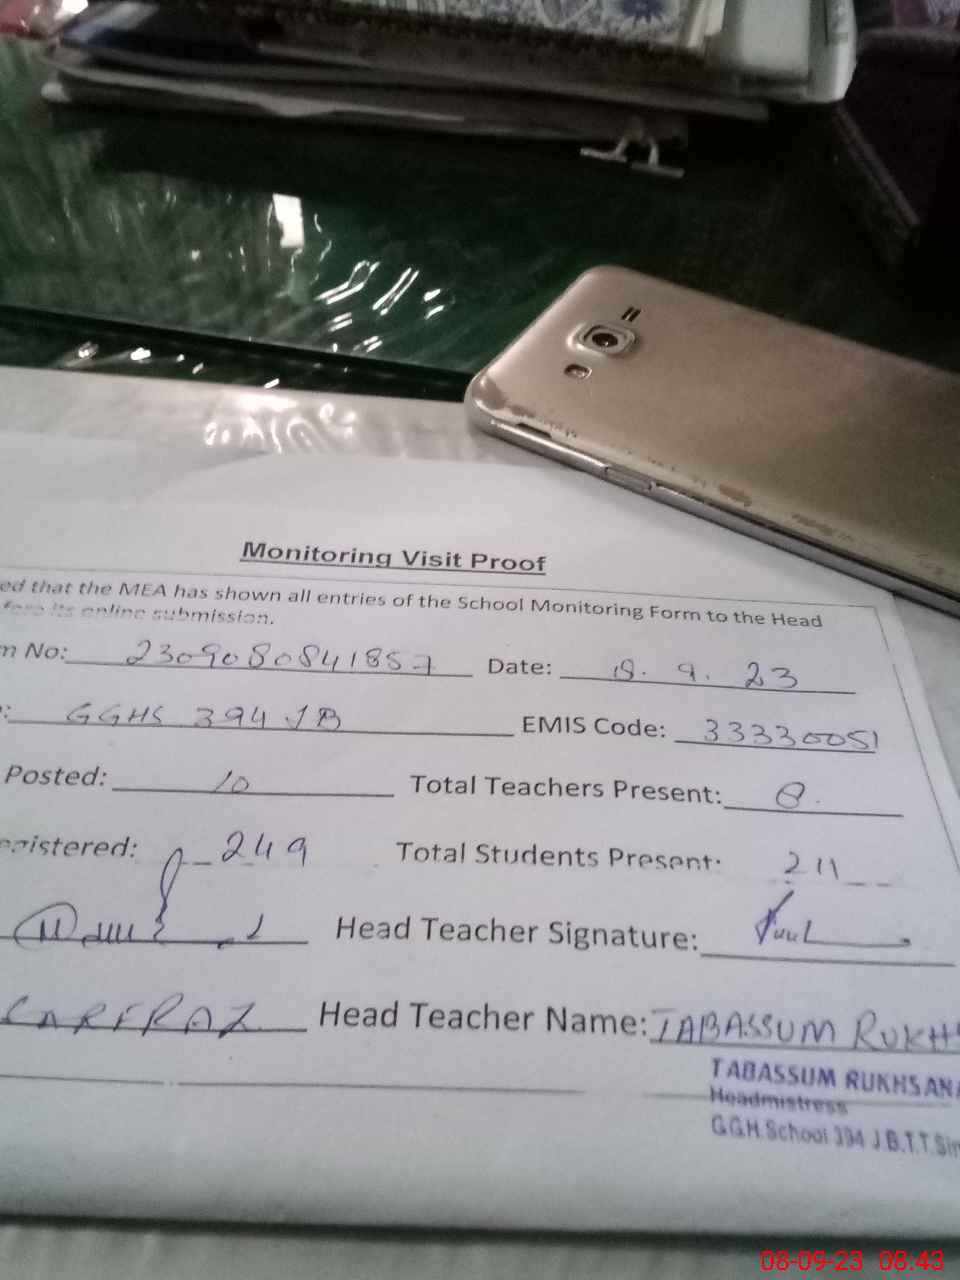 Monitoring Visit Proof
ed that the MEA has shown all entries of the School Monitoring Form to the Head
fore its online submission.
n No: 2309080841857 Date: 8. 9. 23
: GGHS 394 JB EMIS Code: 33330051
Posted: 10 Total Teachers Present: 8.
egistered: 249 Total Students Present: 211
Head Teacher Signature:
SARFRAZ Head Teacher Name: TABASSUM RUKHS
TABASSUM RUKHSANA
Headmistress
G.G.H.School 394 J.B.T.T.Sin
08-09-23 08:43